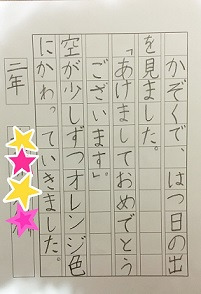 かぞくで、はつ日の出
を見ました。
「あけましておめでとう
ございます」。
空が少しずつオレンジ色
にかわっていきました。
二年